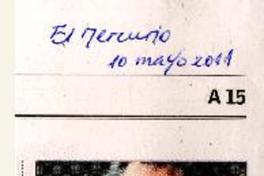 El Mercurio
10 mayo 2011
A 15